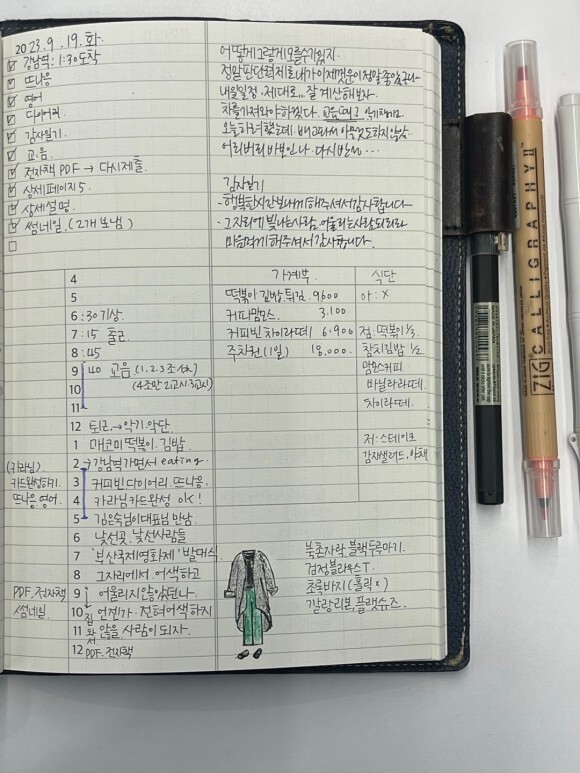 2023. 9. 19. 화.
강남역: 1:30도착
뜨나용
영어
다이어리
감사일기
교. 음
전자책 PDF → 다시제출.
상세페이지 5
상세설명.
썸네일. (2개 보냄)
어떻게 그렇게 모를수가 있지.
정말 판단력 제로. 내가 이제껏 운이 정말 좋았구나
내일일정. 제대로... 잘 계산해보자.
차를가져와야하려나.
오늘하려했는데.
어리버리 바보인나. 다시반성...
감사일기
- 행복한시간보내게해주셔서감사합니다
- 그자리에 빛나는사람. 어울리는사람되리라
마음먹게 해주셔서감사합니다.
4
5
6 :30 기상.
7 :15 출근.
8 :45
9 40 교음 (1.2.3조
10 (4조만 2교시.3교시)
11
12 퇴근. → 악기. 악단
1 매코미 떡볶이. 김밥.
2 → 강남역가면서 eating.
3 커피빈 다이어리. 뜨나용.
4 카라님카드완성 ok!
5 김은숙님이대표님 만남.
6 낯선곳. 낯선사람들
7 '부산국제영화제' 발대식.
8 그자리에서. 어색하고
9 어울리지않았던나.
10 언젠가. 전혀어색하지
11 않을 사람이되자.
12 PDF. 전자책
집와서
(카라님)
카드완성하기.
뜨나용. 영어.
PDF. 전자책
썸네일.
가계부.
떡볶이 김밥. 튀김. 9600
커피맘모스. 3.100
커피빈차이라떼 6.900
주차권 (1일) 18.000.
식단
아: X
점: 떡볶이 1/3.
참치김밥 1/2.
맘모스커피
바닐라라떼.
차이라떼.
저: 스테이크
감자샐러드. 야채
북촌자락. 블랙두루마기.
검정블라우스T.
초록바지 (홀릭x)
깔랑리본. 플랫슈즈.
ZIG CALLIGRAPHY II